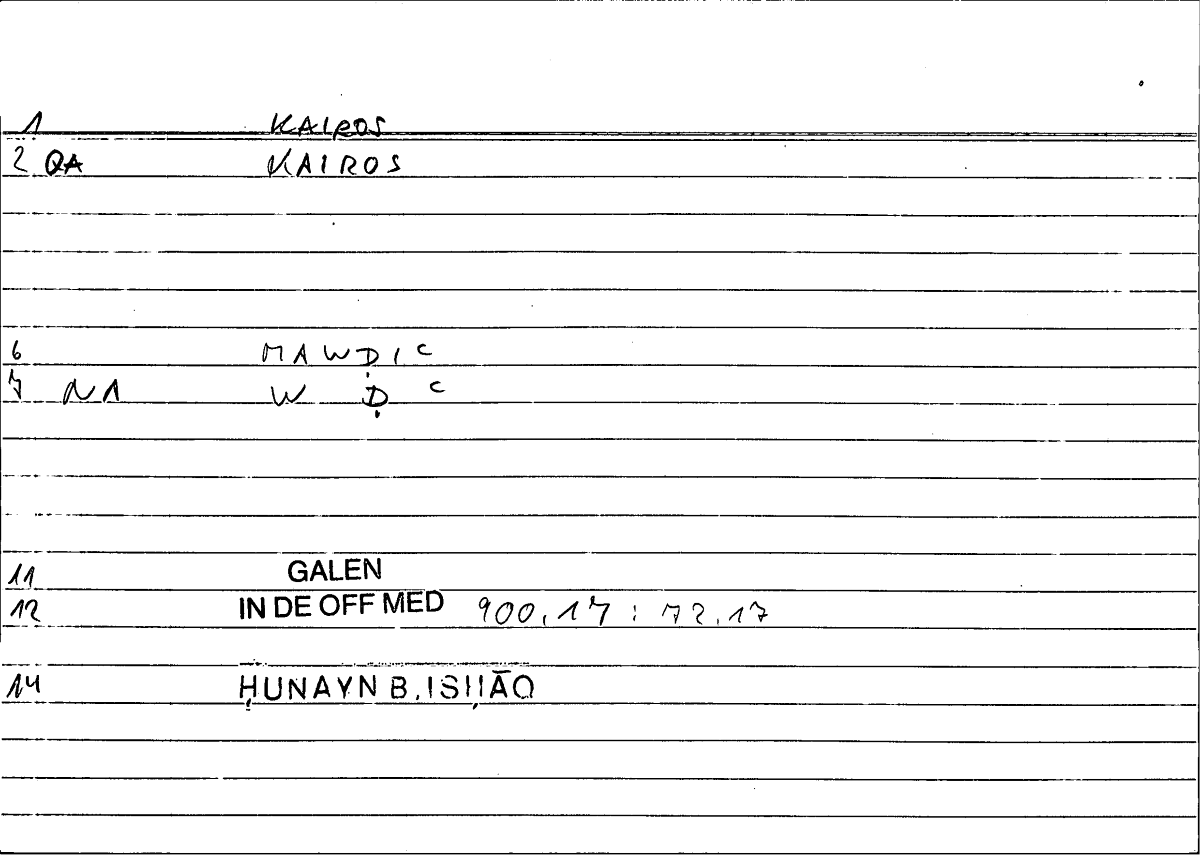 1 KAIROS
2 QA KAIROS
6 MAWḌIC
7 NA W Ḍ C
11 GALEN
12 IN DE OFF MED 900,17 : 72,17
14 ḤUNAYN B. ISḤĀQ